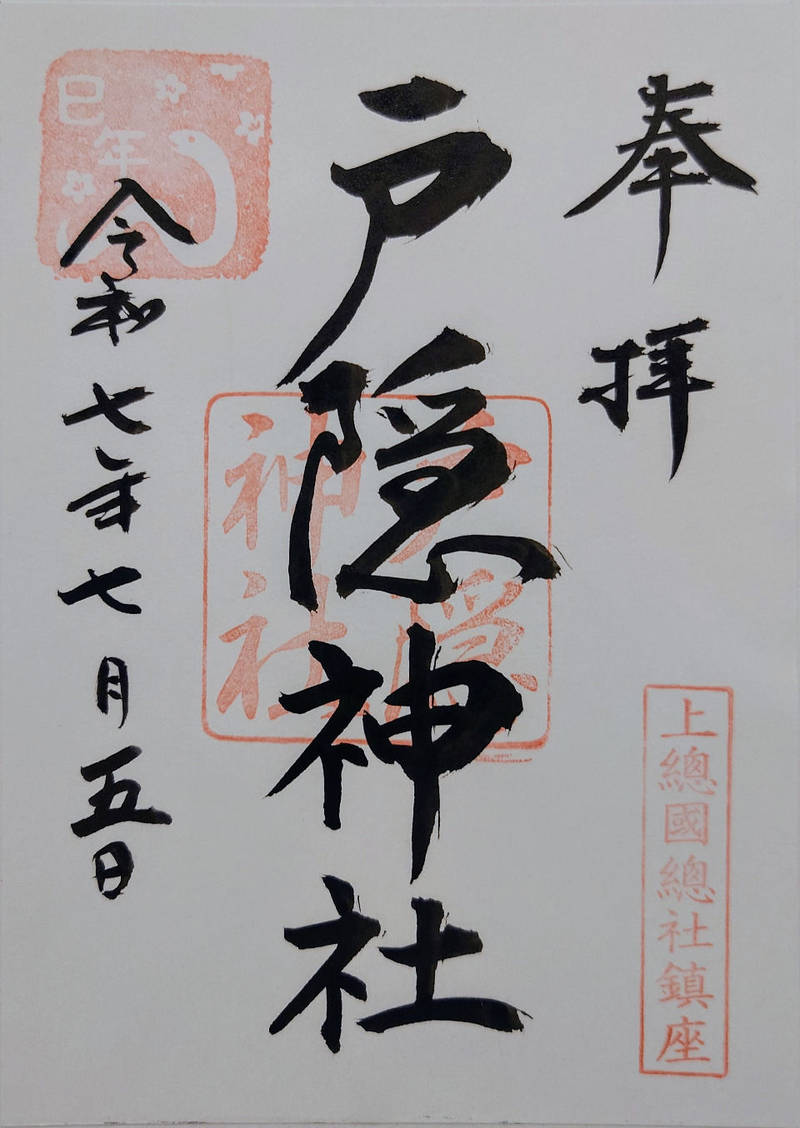 奉拝
上總國總社鎮座
戸隠神社
戸隠
神社
巳年
令和七年七月五日